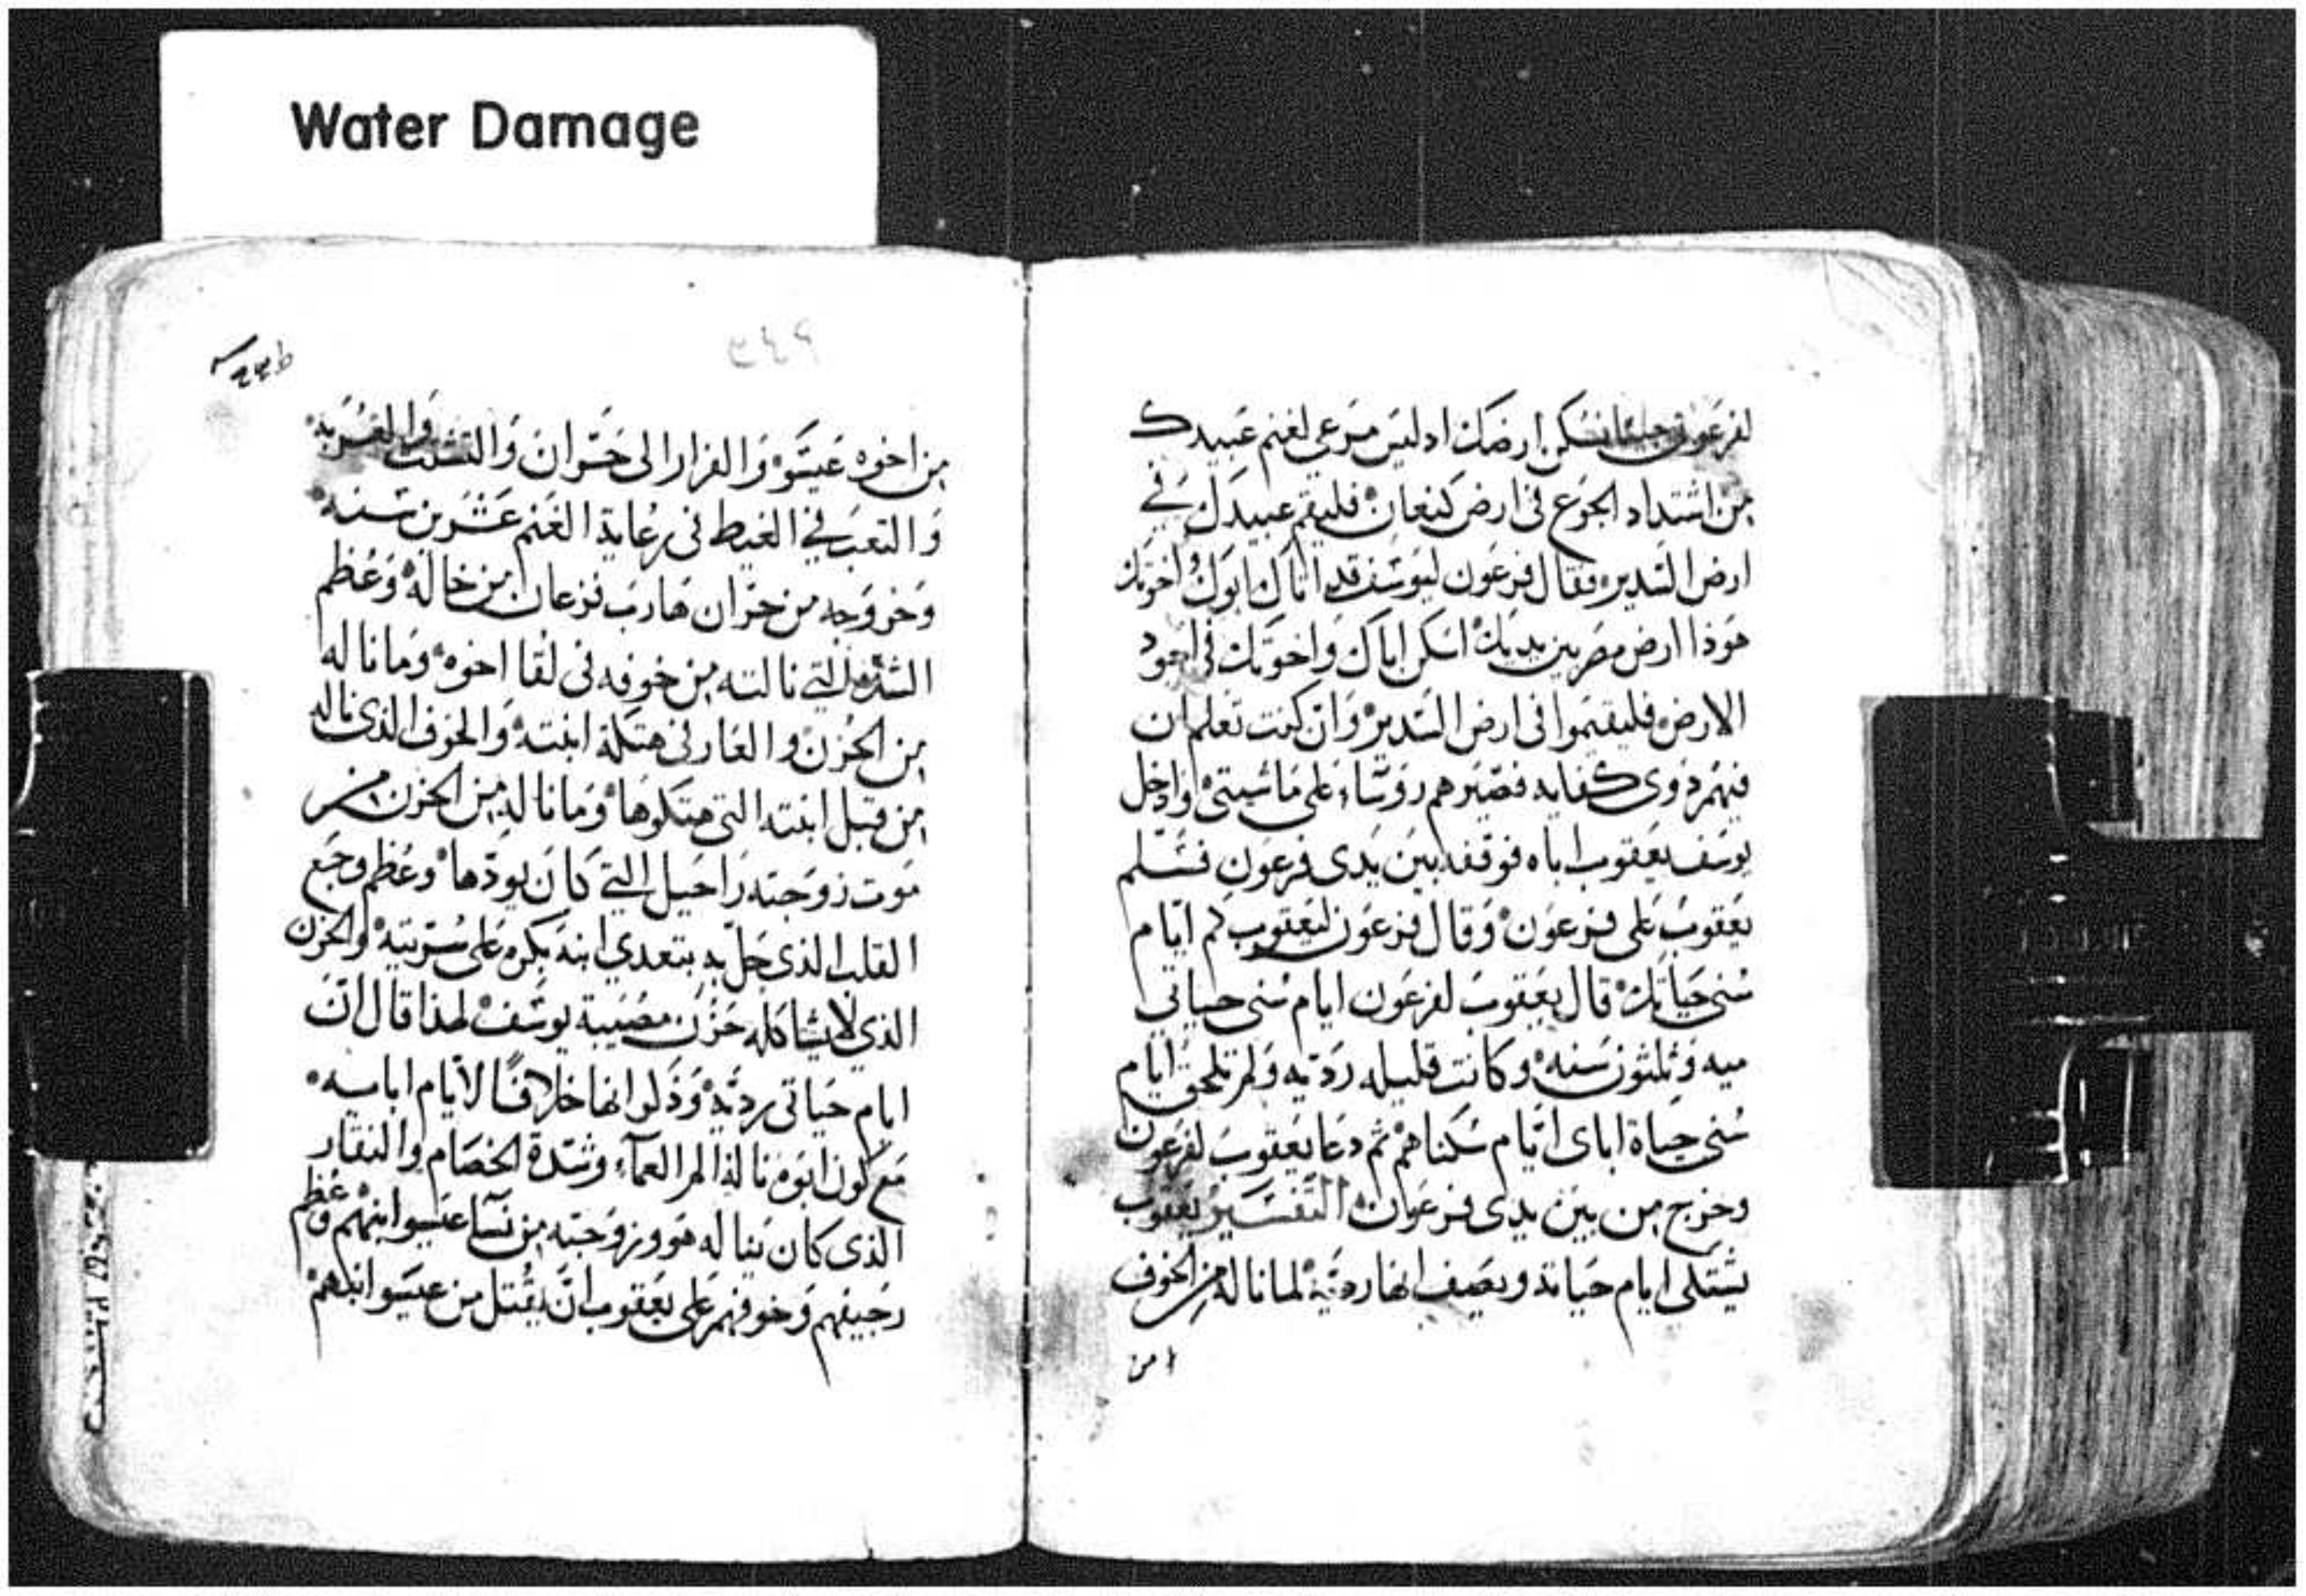 Water Damage
لفرعون جينا نسكن ارضك اد ليس مرعى لغنم عبيدك
من اشتداد الجوع فى ارض كنعان فليقم عبيدك في
ارض السدير فقال فرعون ليوسف قد اتاك ابوك واخوتك
هوذا ارض مصر بين يديك اسكن اباك واخوتك فى اجود
الارض فليقيموا فى ارض السدير وان كنت تعلم ان
فيهم ذوى كفايه فصيرهم روساء على ماشيتى وادخل
يوسف يعقوب اباه فوقفه بين يدى فرعون فسلم
يعقوب على فرعون وقال فرعون ليعقوب كم ايام
سنى حياتك قال يعقوب لفرعون ايام سنى حياتي
ميه وثلثون سنه وكانت قليله رديه ولم تلحق ايام
سنى حياة اباى ايام سكناهم ثم دعا يعقوب لفرعون
وخرج من بين يدى فرعون التفسير يعقوب
يشتكى ايام حياته ويصف انها رديه لما ناله من الخوف
من
٣٤٦
من اخوه عيسو والفرار الى حران والتشتت والغربه
والتعب في الغيط فى رعاية الغنم عشرين سنه
وخروجه من حران هارب فزعان من خاله وعظم
الشده التي نالته من خوفه فى لقا اخوه وما ناله
من الحزن والعار فى هتكة ابنته والخوف الذى ناله
من قبل ابنته التى هتكوها وما ناله من الحزن من
موت زوجته راحيل التي كان يودها وعظم وجع
القلب الذى حل به بتعدي ابنه بكره على سريته والحزن
الذي لا يشاكله حزن مصيبة يوسف لهذا قال ان
ايام حياتى رديه وذكر انها خلافًا لايام اباييه
مع كون ابوه ناله الم العماء وشدة الخصام والنقار
الذى كان يناله هو وزوجته من نسا عيسو ابنهم وعظم
رجيفهم وخوفهم على يعقوب انه يقتل من عيسو ابنهم